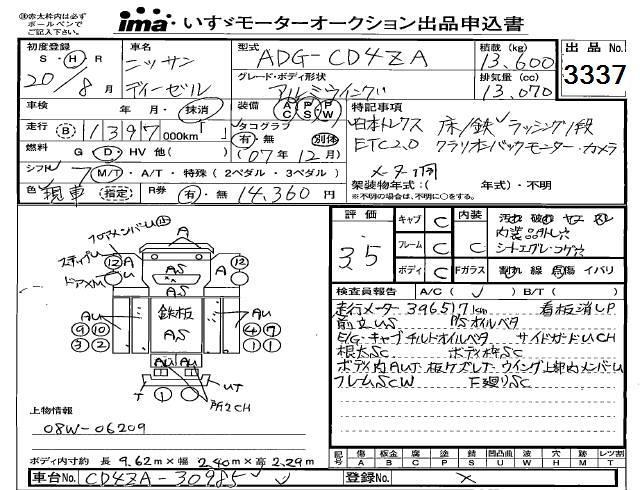 ㊟赤太枠内は必ず
ボールペンで
ご記入下さい。
ima いすゞモーターオークション出品申込書
初度登録 S・Ⓗ・R 20/8月
車名 ニッサン ディーゼル
型式 ADG-CD4ZA
グレード・ボディ形状 アルミウイング
積載 (kg) 13,600
排気量 (cc) 13,070
出品 No. 3337
車検 年 月・抹消
装備 AC PS PW
特記事項
走行 Ⓑ 1397 000km
タコグラフ 有・無 別体
日本トレクス 床/鉄 ラッシング1段
燃料 G Ⓓ HV 他( )
('07年12月)
ETC2.0 クラリオンバックモニター・カメラ
シフト 7 M/T・A/T・特殊(2ペダル・3ペダル)
架装物年式:( 年式)・不明
※不明の場合は、不明に○をする。
色 (指定) R券 有・無 14,360円
評価 3.5
キャブ C 内装 汚れ 破れ
内装品外し穴
フレーム C C シートエグレ・コゲ穴
ボディ C Fガラス 割れ 線 点傷 イバリ
検査員報告 A/C( ✓ ) B/T( )
走行メーター396517km 看板消しP
前立US P/Sオイルベタ
E/G・キャブチルトオイルベタ サイドガードUCH
根太SC ボディ枠SC
フレームSCW 下廻りSC
フロアメンバーU
ステップU
ドアXM
A
12 A
A 12
AS
鉄板
AS
AU
AU
9 10
3 2
4 7
1 1
AU AU
T 1
UT
上物情報
08W-06209
ボディ内寸約 長 9.62m×幅 2.40m×高 2.29m
記号 傷 A 板金 B 腐 C 塗 P 錆 S 凹凸曲 U 波 W 穴 H 跡 M レツ割 T
車台No. CD4ZA-30985
登録No.